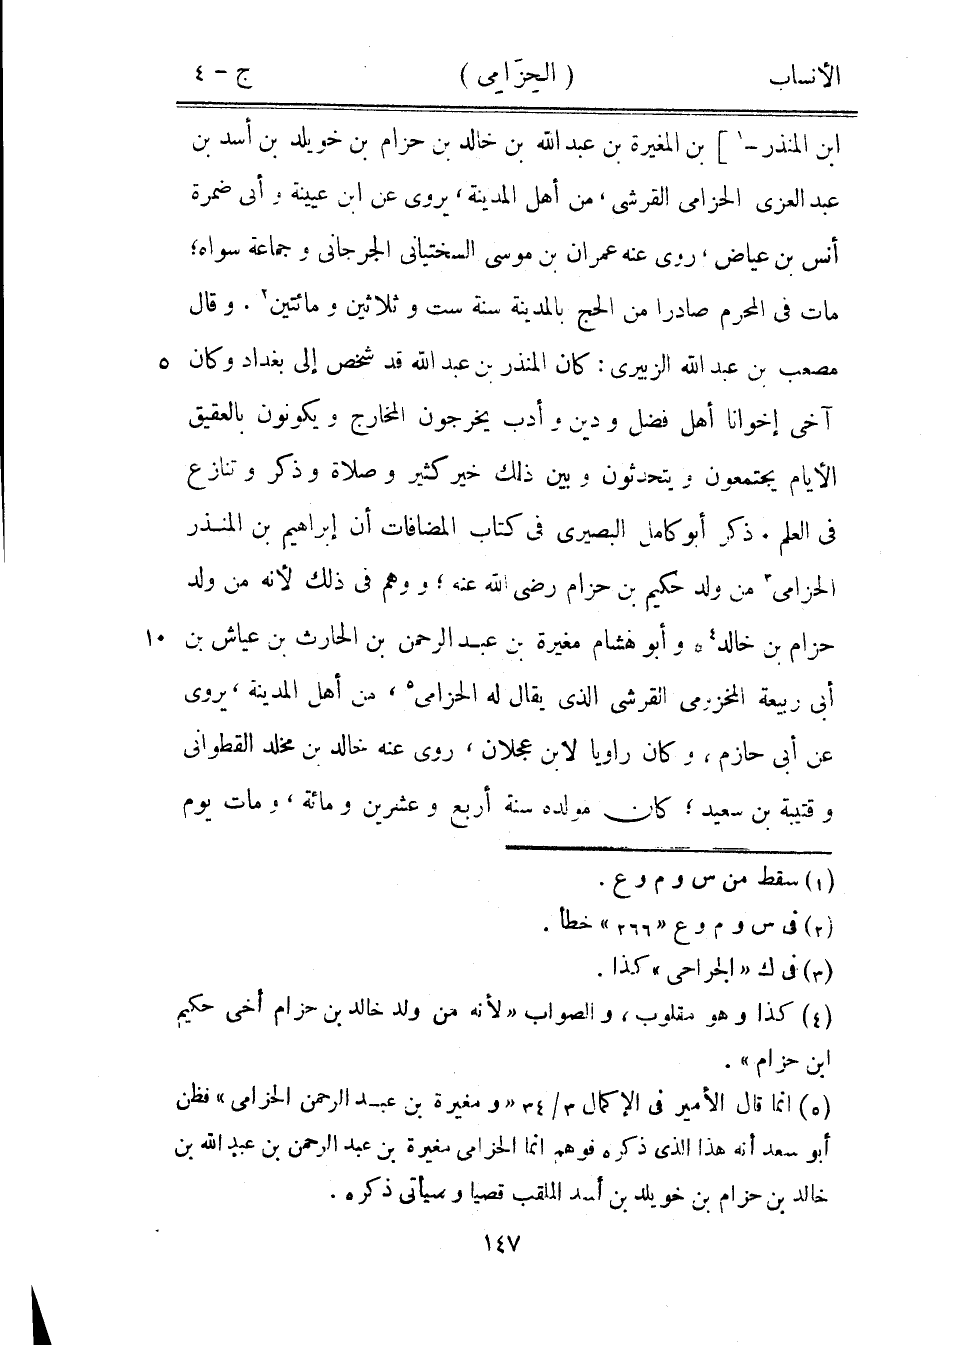 الأنساب ( الحِزَامى ) ج - ٤
ابن المنذر-١ ] بن المغيرة بن عبد الله بن خالد بن حزام بن خويلد بن أسد بن
عبد العزى الحزامى القرشى ، من أهل المدينة ، يروى عن ابن عيينة و أبى ضمرة
أنس بن عياض ، روى عنه عمران بن موسى السختيانى الجرجانى و جماعة سواه؛
مات فى المحرم صادرا من الحج بالمدينة سنة ست و ثلاثين و مائتين٢ . و قال
مصعب بن عبد الله الزبيرى : كان المنذر بن عبد الله قد شخص إلى بغداد وكان ٥
آخى إخوانا أهل فضل و دين و أدب يخرجون المخارج و يكونون بالعقيق
الأيام يجتمعون و يتحدثون و بين ذلك خير كثير و صلاة و ذكر و تنازع
فى العلم . ذكر أبو كامل البصيرى فى كتاب المضافات أن إبراهيم بن المنذر
الحزامى٣ من ولد حكيم بن حزام رضى الله عنه ؛ و وهم فى ذلك لأنه من ولد
حزام بن خالد٤ ه و أبو هشام مغيرة بن عبد الرحمن بن الحارث بن عياش بن ١٠
أبى ربيعة المخزومى القرشى الذى يقال له الحزامى٥ ، من أهل المدينة ، يروى
عن أبى حازم ، و كان راويا لابن عجلان ، روى عنه خالد بن مخلد القطوانى
و قتيبة بن سعيد ؛ كان مولده سنة أربع و عشرين و مائة ، و مات يوم
(١) سقط من س و م و ع .
(٢) فى س و م و ع « ٢٦٦ » خطأ .
(٣) فى ك « الجراحى » كذا .
(٤) كذا و هو مقلوب ، و الصواب « لأنه من ولد خالد بن حزام أخى حكيم
ابن حزام » .
(٥) انما قال الأمير فى الإكمال ٣/ ٣٤ « و مغيرة بن عبد الرحمن الحزامى » فظن
أبو سعد أنه هذا الذى ذكره فوهم انما الحزامى مغيرة بن عبد الرحمن بن عبد الله بن
خالد بن حزام بن خويلد بن أسد الملقب قصيا و سيأتى ذكره .
١٤٧